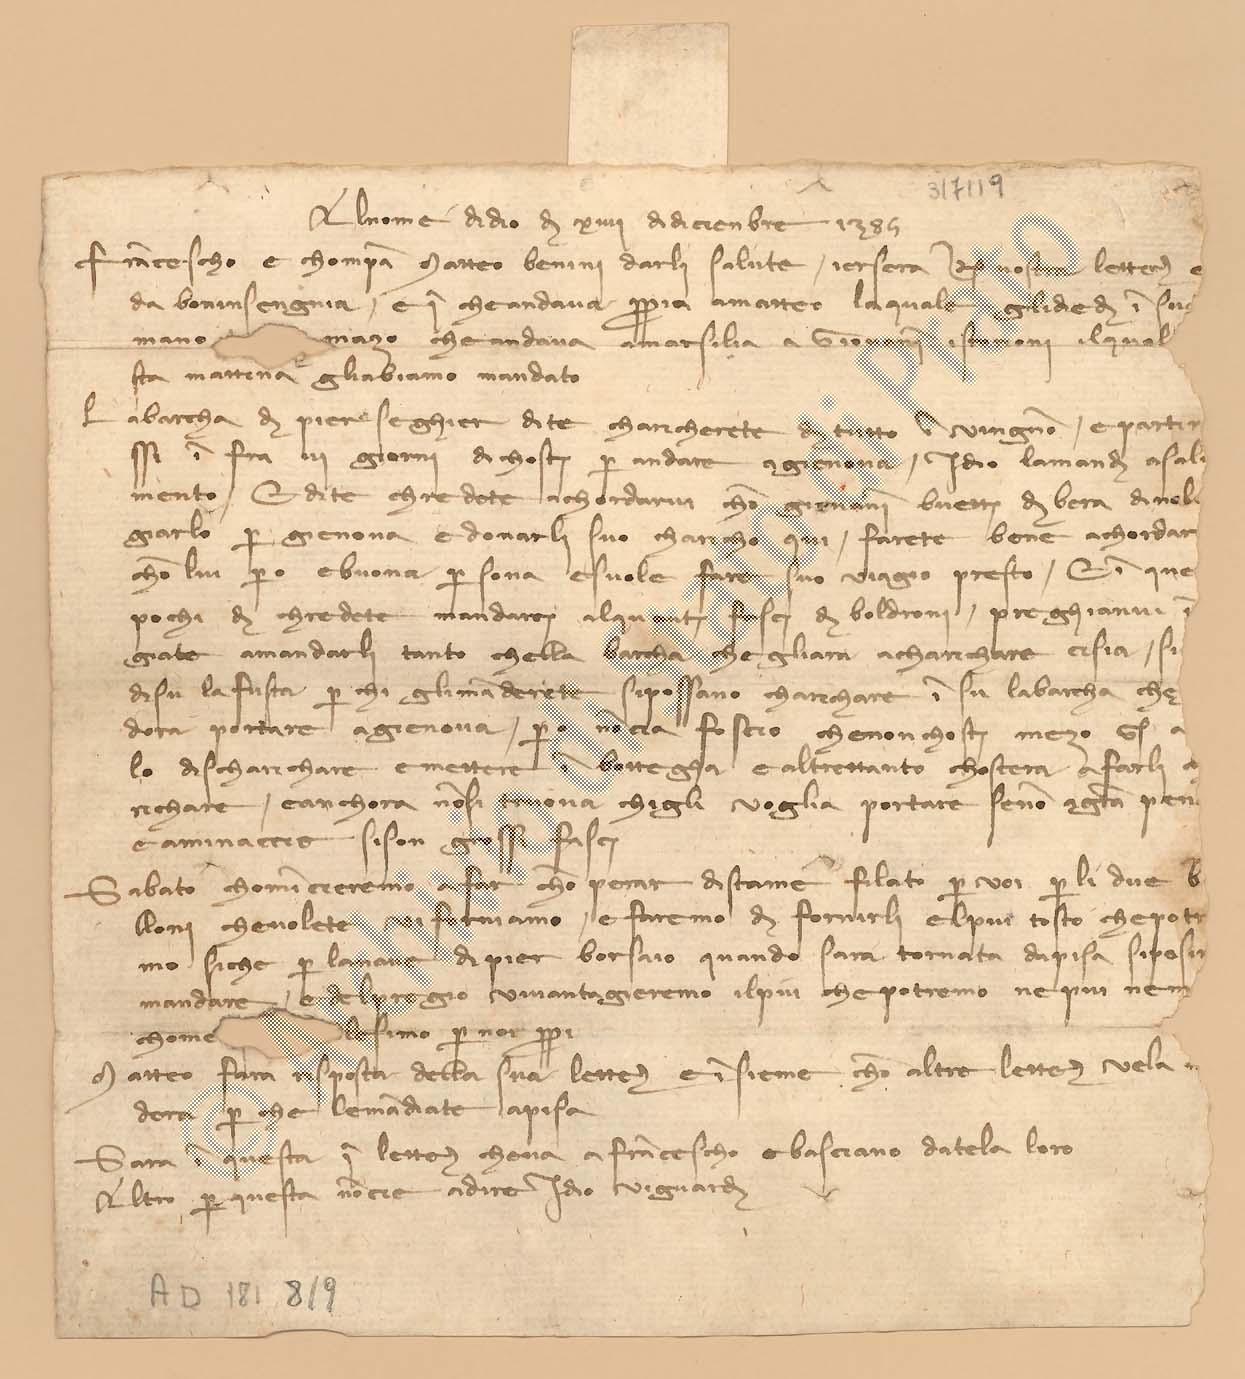 317119
Al nome di dio di xviii di dicienbre 1385
Francescho e chonpa Matteo benini d'arli salute / iersera nostra letter e
da boninsengnia / e i che andava propia a matteo la quale gli died i sua
mano mazo che andava a marsilia a Giovani istanoni il qual
sta mattina gli abiamo mandato
La barcha di pier seghier dite charicherete di tutto i vingnio / e partir
ssi i fra iii giorni di chosti p andare a gienova / Idio la mandi a salv
mento / E dite chredete achordarvi cho giovani buetti di bera di nole
giarlo p gienova e donarli suo charicho qui / farete bene achordar
cho lui po e buona p sona e suole fare suo viagio presto / E i que
pochi di chredete mandarci alquanti fasci di boldroni / preghianvi i
giate a mandarli tanto che lla barcha che gli ara a charichare ci sia / si
di su la fusta p chi gli manderete si possano charichare i su la barcha che
dora portare a gienova / po no cia foscio che non chosti mezo a
lo discharichare e mettere i bottegha e altrettanto chostera a farli
richare / e anchora no si truova chi gli voglia portare seno
e a minaccie si son grossi fasci
Sabato chomicieremo a far chonperar di stame filato p voi p li due b
lloni che volete vi forniamo / e faremo di fornirli e l piu tosto che potr
mo siche p la nave di pier borsaio quando sara tornata da pisa si posi
mandare / e del pregio vi vantagieremo il piu che potremo ne piu ne m
chome simo p noi propi
Matteo fara risposta della sua letter e isieme cho altre letter ve la
dera p che le mandiate a pisa
Sara i questa i letter che va a francescho e basciano datela loro
Altro p questa no cie a dire Idio vi guardi
AD 181 8/9
© Archivio di Stato di Prato